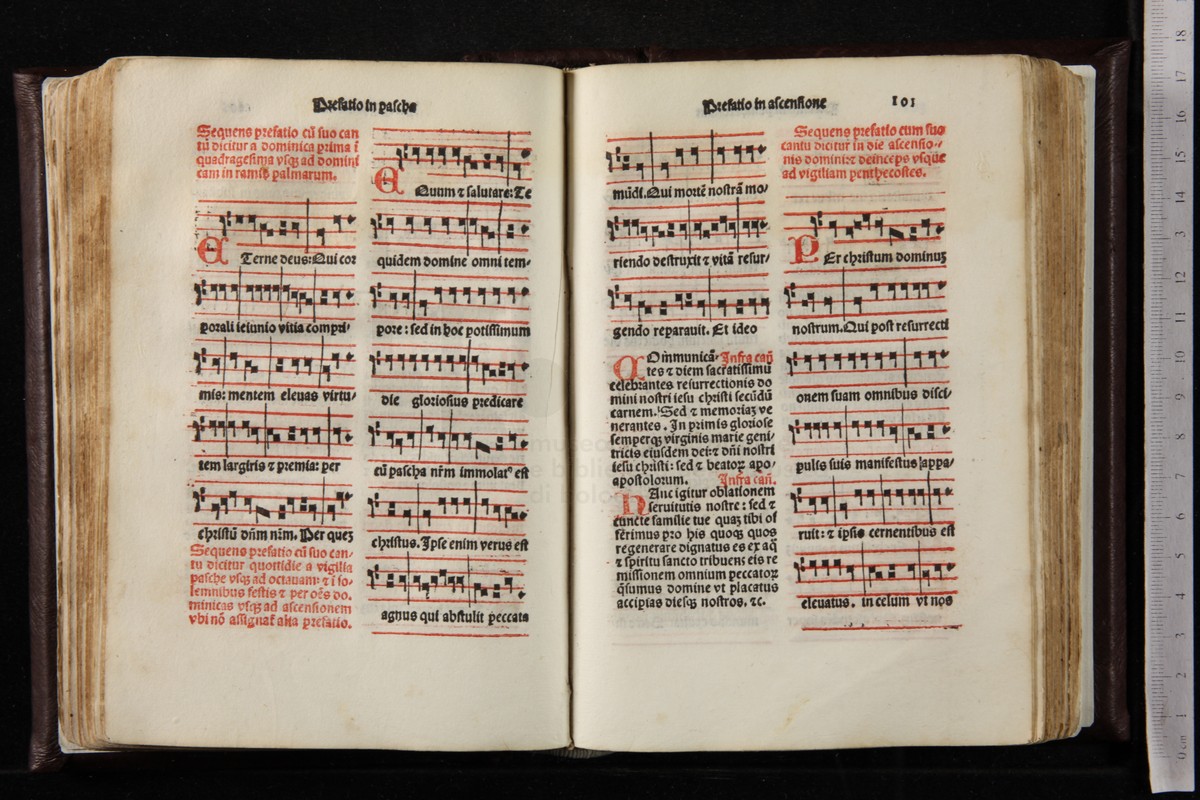 Prefatio in pascha
Sequens prefatio cũ suo can
tu dicitur a dominica prima ĩ
quadragesima vsq̃ ad domini
cam in ramis palmarum.
ETerne deus: Qui cor
porali ieiunio vitia compri-
mis: mentem eleuas virtu-
tem largiris ⁊ premia: per
christũ dñm nr̃m. Per quez
Sequens prefatio cũ suo can-
tu dicitur quottidie a vigilia
pasche vsq̃ ad octauam: ⁊ ĩ so-
lemnibus festis ⁊ per oẽs do-
minicas vsq̃ ad ascensionem
vbi nõ assignat᷑ alia prefatio.
EQuum ⁊ salutare: Te
quidem domine omni tem-
pore: sed in hoc potissimum
die gloriosius predicare
cũ pascha nr̃m immolatꝰ est
christus. Ipse enim verus est
agnus qui abstulit peccata
Prefatio in ascensione
101
mũdi. Qui mortẽ nostrã mo-
riendo destruxit ⁊ vitã resur-
gendo reparauit. Et ideo
COm̃municã- Infra cañ
tes ⁊ diem sacratissimũ
celebrantes resurrectionis do
mini nostri iesu christi secũdũ
carnem. Sed ⁊ memoriaz ve
nerantes. In primis gloriose
semperq̃ virginis marie geni
tricis eiusdem dei: ⁊ dñi nostri
iesu christi: sed ⁊ beatoꝝ apo-
apostolorum. Infra cañ.
HAnc igitur oblationem
seruitutis nostre: sed ⁊
cuncte familie tue quaz tibi of
ferimus pro his quoq̃ quos
regenerare dignatus es ex aq̃
⁊ spiritu sancto tribuens eis re
missionem omnium peccatoꝝ
q̃sumus domine vt placatus
accipias diesq̃ nostros. ⁊c.
Sequens prefatio cum suo
cantu dicitur in die ascensio-
nis domini: ⁊ deinceps vsque
ad vigiliam penthecostes.
PEr christum dominuz
nostrum. Qui post resurrecti
onem suam omnibus disci-
pulis suis manifestus appa-
ruit: ⁊ ipsis cernentibus est
eleuatus. in celum vt nos